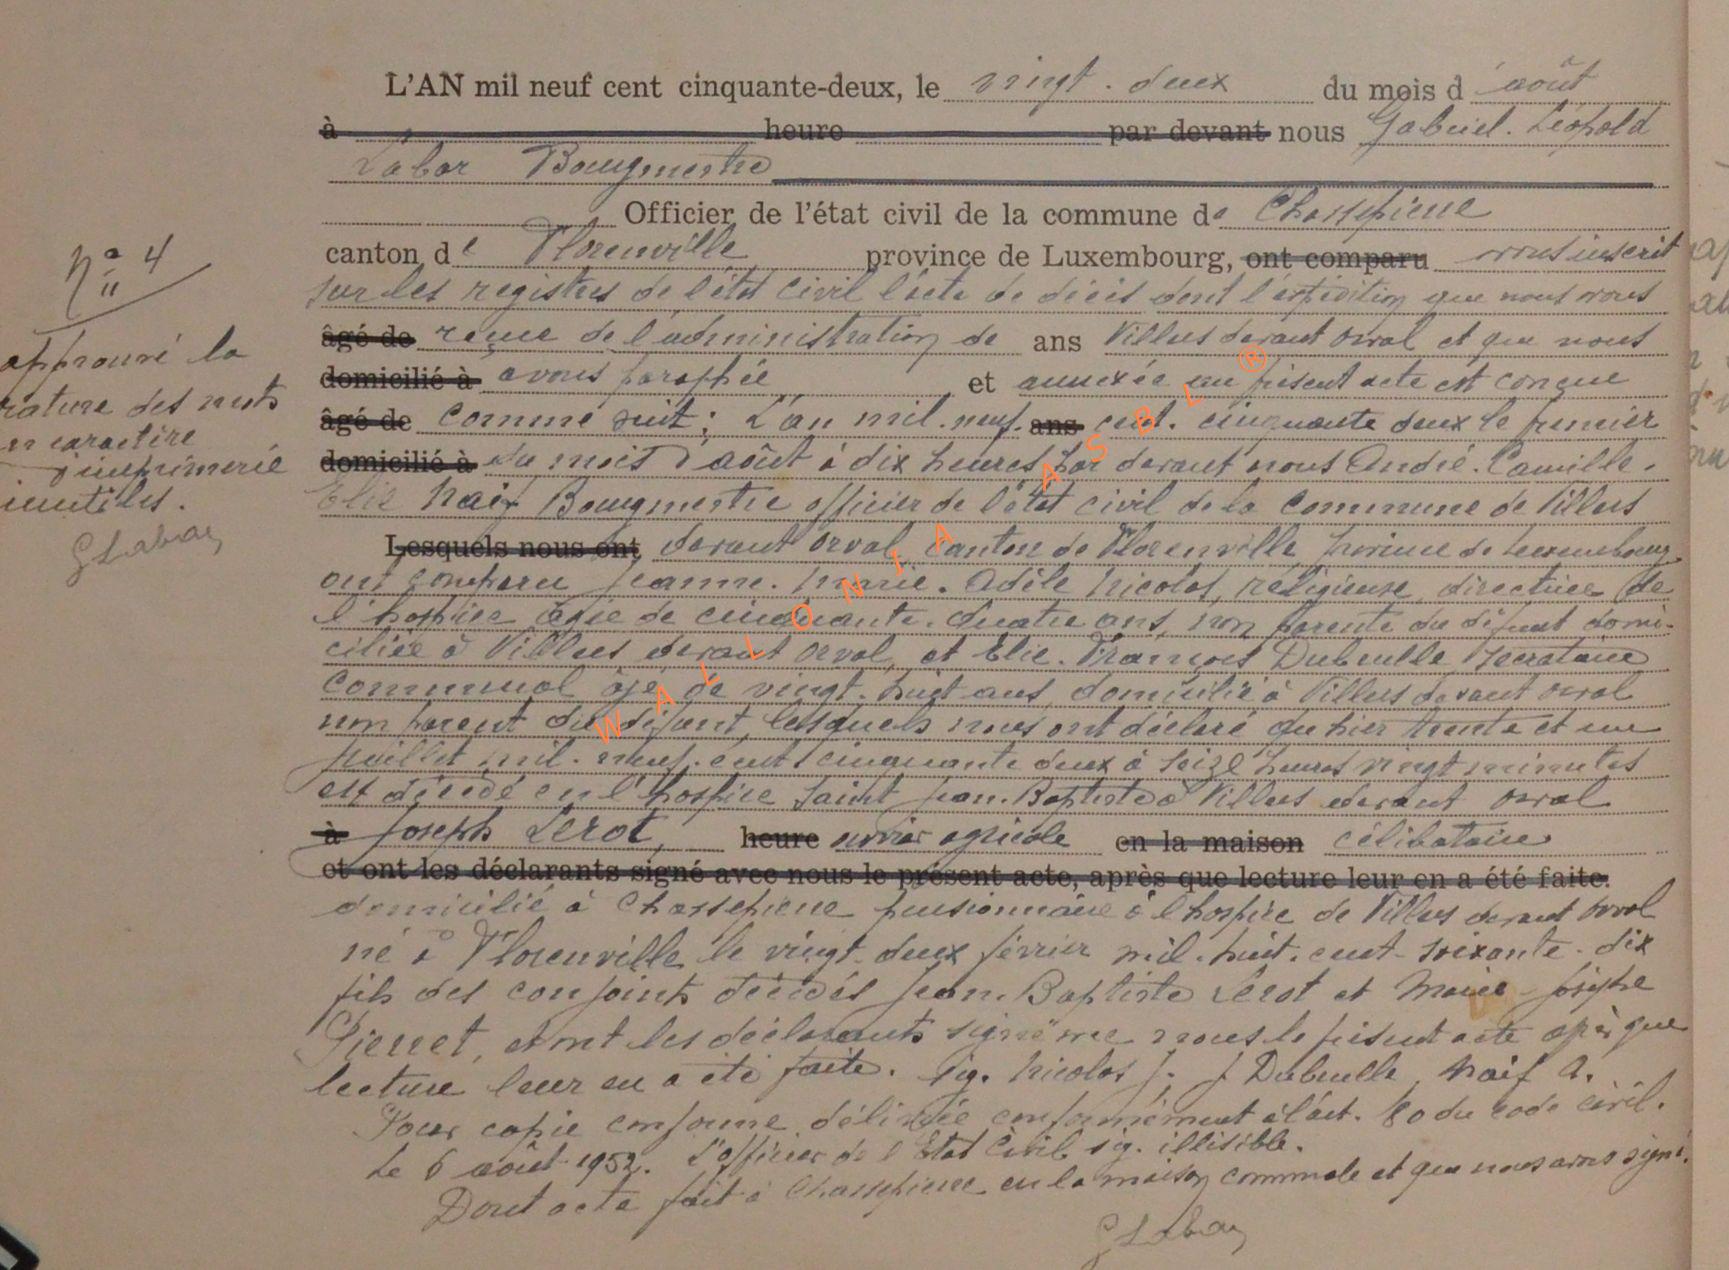 L'AN mil neuf cent cinquante-deux, le vingt-deux du mois d'août
à heure par devant nous Gabriel. Léopold
Labar Bourgmestre
Officier de l'état civil de la commune de Chassepierre
canton de Florenville province de Luxembourg, ont comparu avons inscrit
sur les registres de l'état civil l'acte de décès dont l'expédition que nous avons
âgé de reçue de l'administration de ans Villers devant Orval et que nous
domicilié à avons paraphée et annexée au présent acte est conçue
âgé de comme suit : L'an mil. neuf. ans cent. cinquante deux le premier
domicilié à du mois d'août à dix heures par devant nous André. Camille.
Elie Naif Bourgmestre officier de l'état civil de la commune de Villers
Lesquels nous ont devant Orval, canton de Florenville province de Luxembourg
ont comparu Jeanne. Marie. Adèle Nicolas, religieuse, directrice de
l'hospice âgée de cinquante. quatre ans, non parente du défunt domi-
ciliée à Villers devant Orval, et Elie. François Dubrulle secrétaire
communal âgé de vingt. huit ans domicilié à Villers devant Orval
non parent du défunt, lesquels nous ont déclaré qu'hier trente et un
juillet mil. neuf. cent cinquante deux à seize heures vingt minutes
est décédé en l'hospice Saint Jean-Baptiste à Villers devant Orval
à Joseph Lerot, heure ouvrier agricole en la maison célibataire
et ont les déclarants signé avec nous le présent acte, après que lecture leur en a été faite.
domicilié à Chassepierre pensionnaire à l'hospice de Villers devant Orval
né à Florenville le vingt-deux février mil. huit. cent-soixante-dix
fils des conjoints décédés Jean. Baptiste Lerot et Marie-Josèphe
Pierret, et ont les déclarants signé avec nous le présent acte après que
lecture leur en a été faite. sig. Nicolas J. J Dubrulle, Naif A.
Pour copie conforme délivrée conformément à l'art. 80 du code civil.
Le 6 août 1952. L'officier de l'Etat Civil sig. illisible.
Dont acte fait à Chassepierre en la maison communale et que nous avons signé.
GLabar
N° 4
approuvé la
rature des mots
en caractère
d'imprimerie
inutiles.
GLabar
WALLONIA ASBL ®